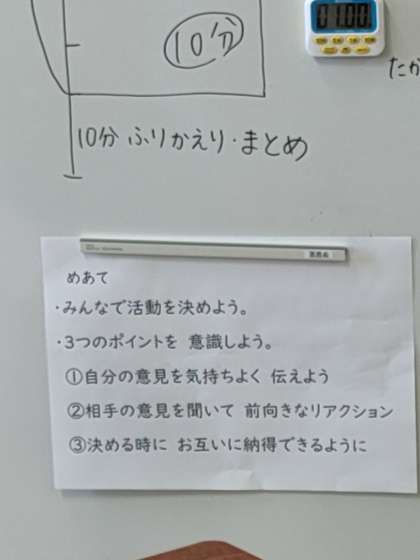 10分
たか
10分 ふりかえり・まとめ
めあて
・みんなで活動を決めよう。
・3つのポイントを 意識しよう。
①自分の意見を気持ちよく 伝えよう
②相手の意見を聞いて 前向きなリアクション
③決める時に お互いに納得できるように